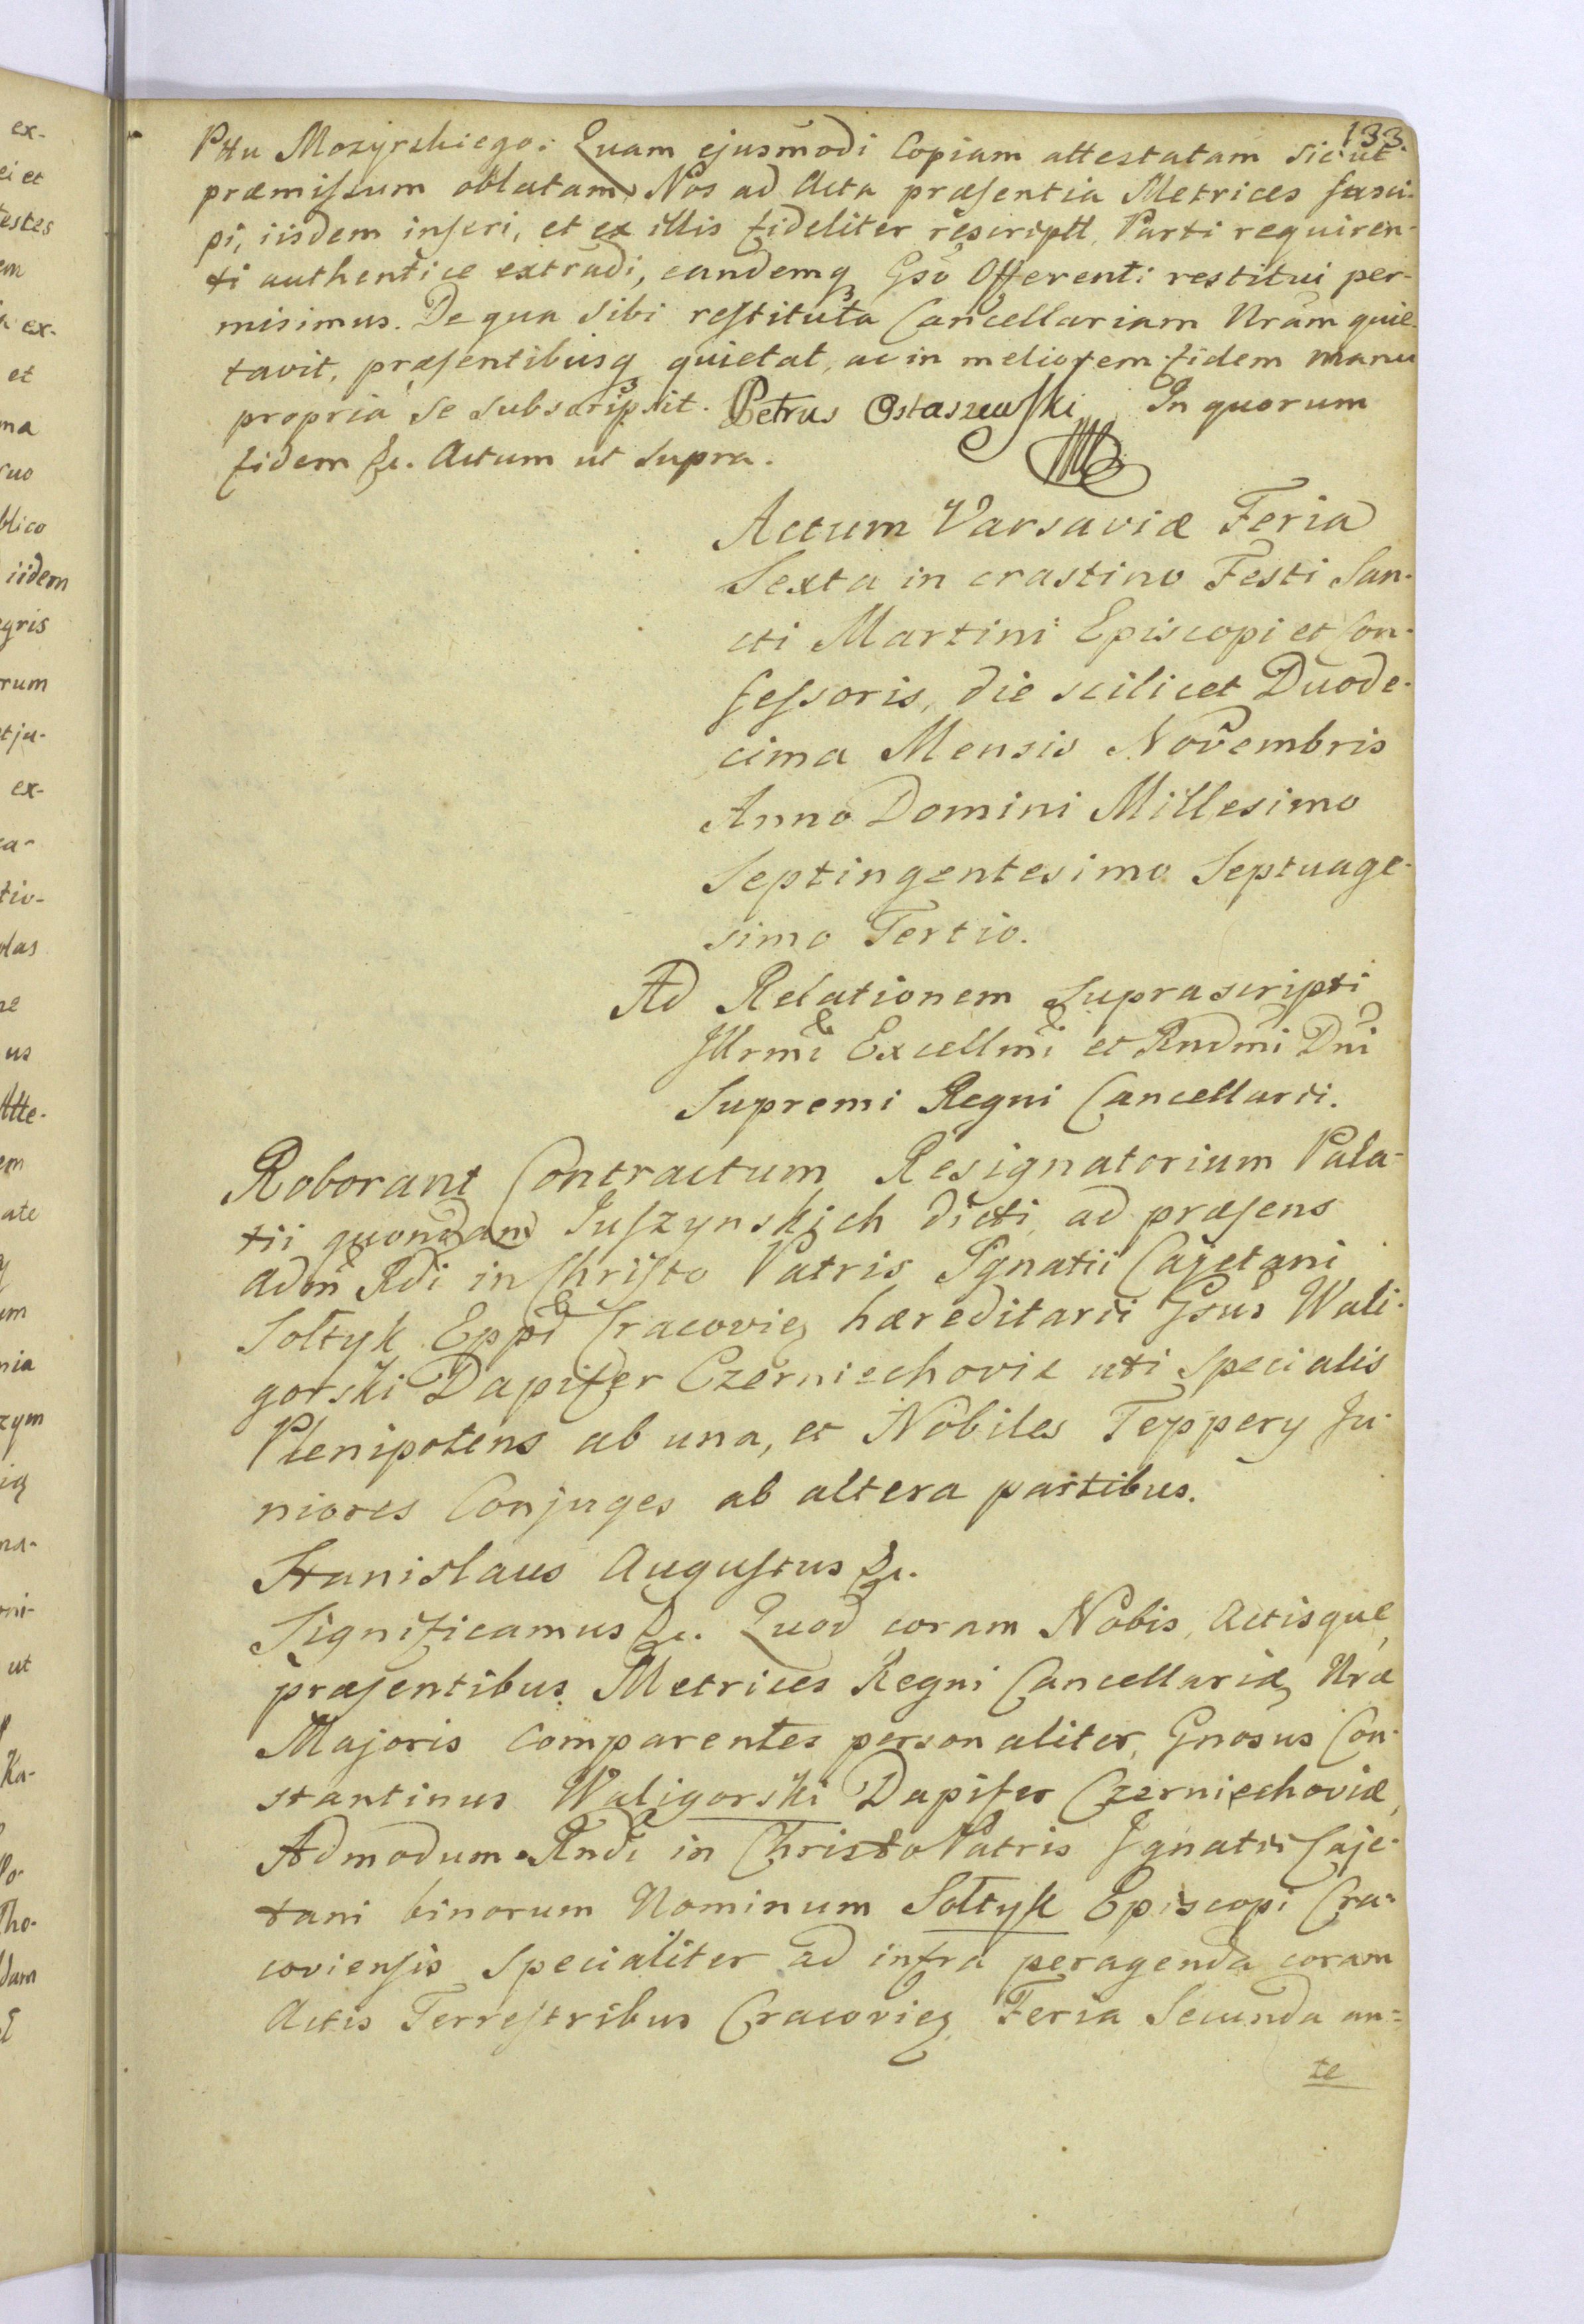 133.
Pttu Mozyrskiego. Quam ejusmodi Copiam attestatam sicut
præmissum oblatam Nos ad Acta præsentia Metrices susci-
pi, iisdem inseri, et ex illis fideliter rescriptt, Parti requiren-
ti authentice extradi, eandemq Gso Offerenti restitui per-
misimus. De qua sibi restituta Cancellariam Nram quie-
tavit, præsentibusq quietat, ac in meliorem fidem manu
propria se subscripsit. Petrus Ostaszewski In quorum
fidem &c. Actum ut supra.
Actum Varsaviæ Feria
Sexta in crastino Festi San-
cti Martini Episcopi et Con-
fessoris, die scilicet Duode-
cima Mensis Novembris
Anno Domini Millesimo
Septingentesimo Septuage-
simo Tertio.
Ad Relationem Suprascripti
Illrmi Excellmi et Rndmi Dni
Supremi Regni Cancellarii.
Roborant Contractum Resignatorium Pala-
tii quondam Juszynskich dicti ad præsens
Adm Rdi in Christo Patris Ignatii Cajetani
Sołtyk Eppi Cracovieg hæreditarii Gsus Wali-
gorski Dapifer Czerniechoviæ uti specialis
Plenipotens ab una, et Nobiles Teppery Ju-
niores Conjuges ab altera partibus.
Stanislaus Augustus &c.
Significamus &c. Quod coram Nobis, Actisque
præsentibus Metrices Regni Cancellariæ Nræ
Majoris Comparentes personaliter, Gnosus Con-
stantinus Waligorski Dapifer Czerniechoviæ,
Admodum Rndi in Christo Patris Ignatii Caje-
tani binorum Nominum Sołtyk Episcopi Cra-
coviensis specialiter ad infra peragenda coram
Actis Terrestribus Cracovieg Feria Secunda an-
te